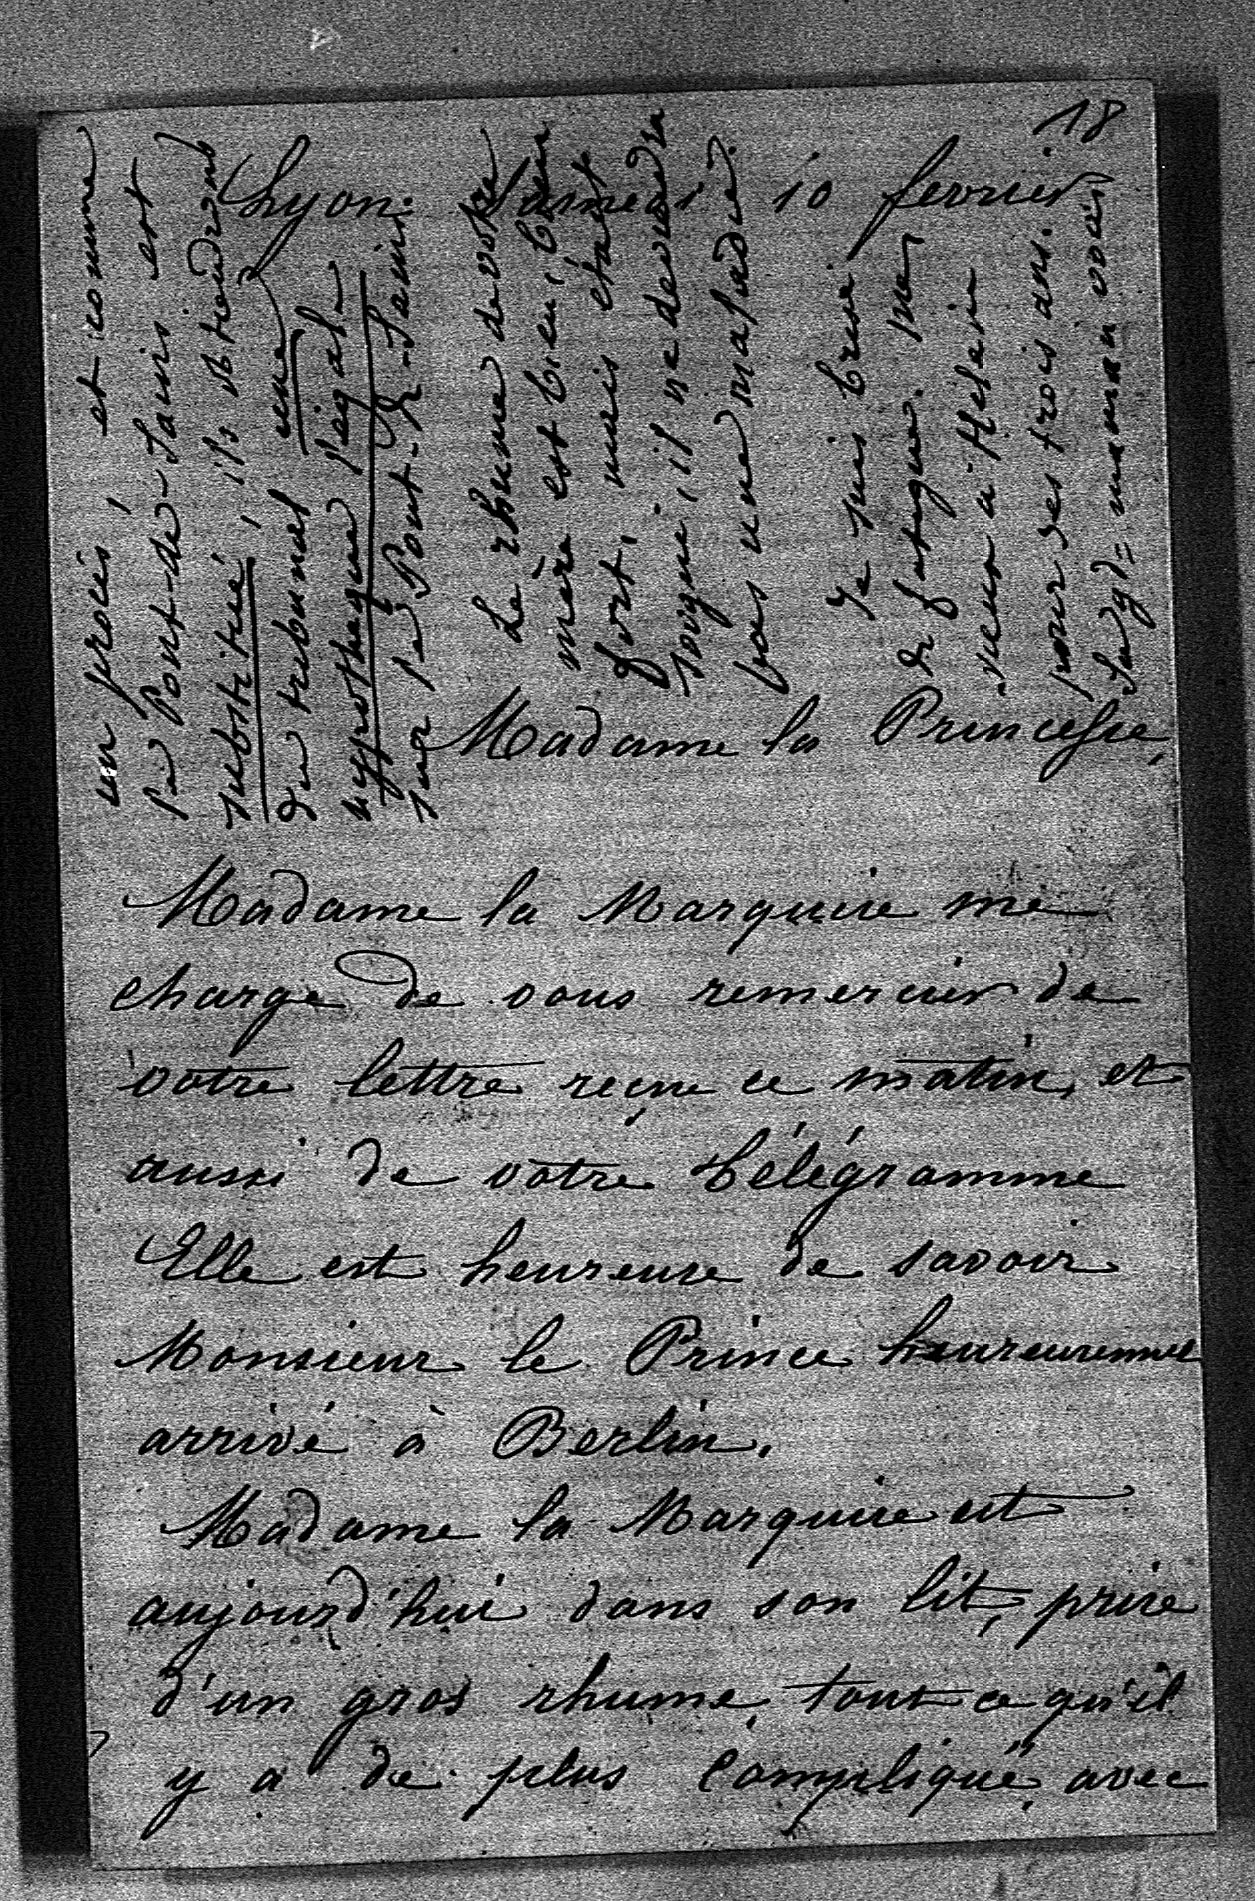 18
Lyon. Samedi 10 février
Madame la Princesse,
Madame la Marquise me
charge de vous remercier de
votre lettre reçue ce matin, et
aussi de votre télégramme
Elle est heureuse de savoir
Monsieur le Prince heureusemet
arrivé à Berlin.
Madame la Marquise est
aujourd'hui dans son lit, prise
d'un gros rhume, tout ce qu'il
y a de plus compliqué, avec
un procès, et comme
le Pont-de-Janis est
substitué, ils obtiendront
du tribunal une
hypothèque légale
sur le Pont-de-Janis.
Le rhume de votre
mère est bien, bien
fort, mais étant
soigné, il ne deviendra
pas une maladie.
Je suis brisé
de fatigue.
pour ses trois ans.
Sa gd= maman